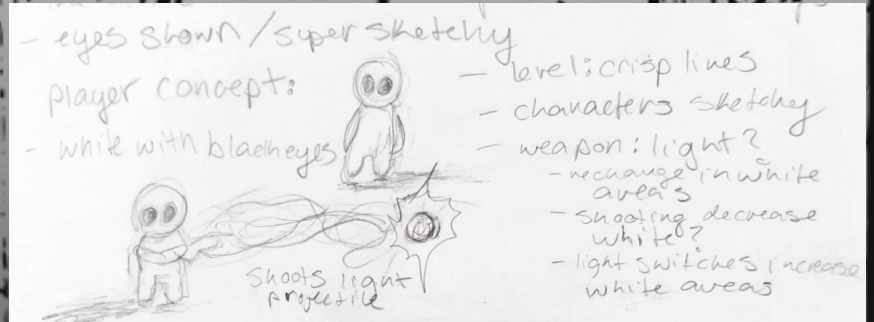 - eyes shown/super sketchy
player concept:
- white with blackeyes
shoots light
projectile
- level: crisp lines
- characters sketchy
- weapon: light?
- rechange in white
areas
- shooting decrease
white?
- light switches increase
white areas